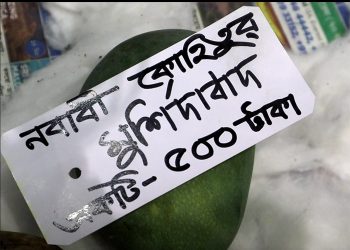 নবাবী- কোহিতুর
মুর্শিদাবাদ
একটি- ৫০০ টাকা